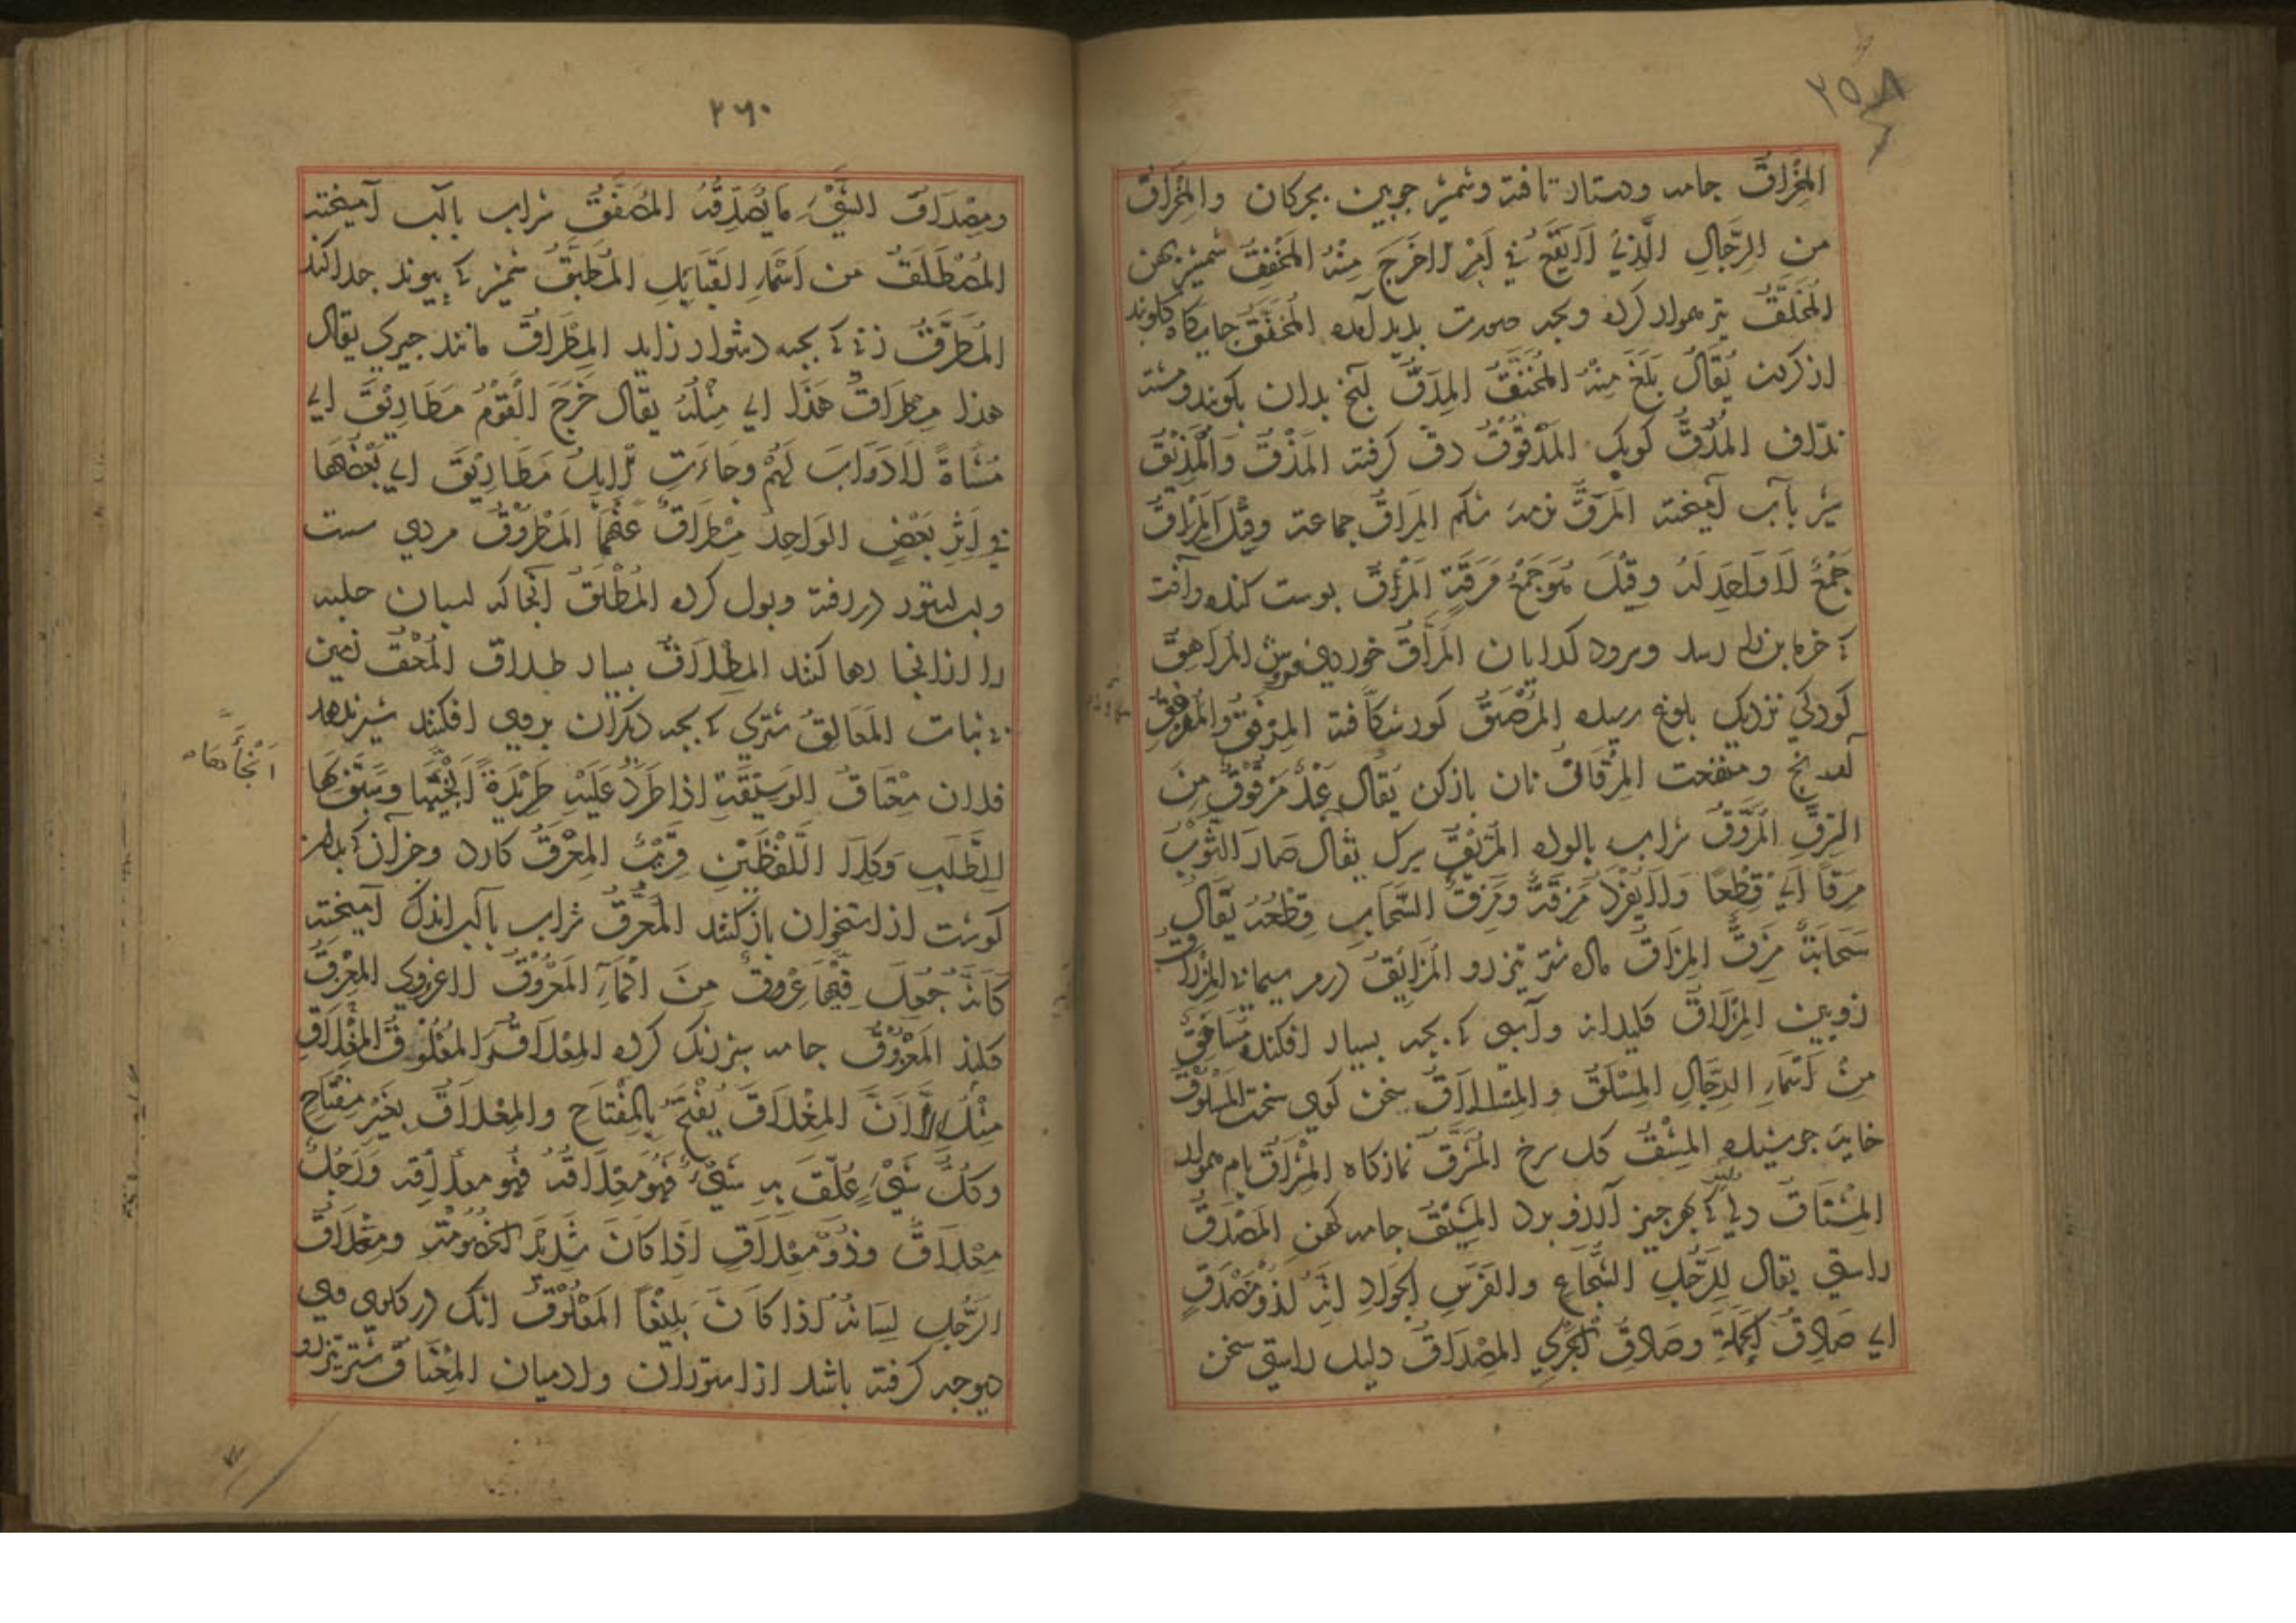 ۲۵۸
المِخْرَاقُ جامه ودستار تافته وشمشیر چوبین بچرکان والمِخْرَاقُ
من الرِّجالِ الَّذِي لَا يَقَعُ فِي اَمْرٍ اِلَّا خَرَجَ مِنْهُ المِخْفَقُ شمشیر پهن
المُخَلَّقُ تیر هموار کرده وبچه صورت پدید آمده المُخَنَّقُ جایکاه کلوبند
از کردن يُقَالُ بَلَغَ مِنْهُ المُخَنَّقُ المِدَقُّ آنچ بدان بکوبند ومشته
ندّاف المُدُقُّ کوبک المَدْقُوقُ دق کرفته المَذْقُ وَالمَذِيْقُ
شیر بآب آمیخته المَرَقُّ نرمه شکم المَرَاقُّ جماعة وقِيْلَ المَرَاقُّ
جَمْعٌ لَا وَاحِدَ لَهُ وقِيْلَ هُوَ جَمْعُ مَرَقَّةٍ المَرْقُ پوست کنده وآفت
کودکی نزدیک بلوغ رسیده المُرْضَقُ کور شکافته المِرْفَقُ والمَرْفِقُ
آرنج ومنفعت المِرْقَاقُ نان بازکن يُقَالُ عَبْدٌ مَرْقُوقٌ مِنَ
الرِّقِّ المُرَوَّقُ شراب پالوده المُرَيَّقُ يُقَالُ صَارَ الثَّوْبُ
مِزَقًا اَيْ قِطَعًا وَلَا يُفْرَدُ مِزْقَةٌ ومِزَقُ السَّحَابِ قِطَعُهُ يُقَالُ
سَحَابَةٌ مِزَقٌ المِزَاقُ ماده شتر تیزرو المُزَابَقُ درم سیمابی المِزْرَاقُ
زوبین المِزْلَاقُ کلیدانه وآبسی که بچه بسیار افکند مُسَافِقٌ
مِنْ اَسْمَاءِ الرِّجَالِ المِسْلَقُ والمِسْلَاقُ سخن کوی سخت المَسْلُوقُ
خایه جوشیده المِشْقُ کل سرخ المُشَرَّقُ نمازکاه المِشْرَاقُ بام هموار
المُشْتَاقُ دلی که بهر چیز آرزو برد المَشِيْقُ جامه کهن المَصْدَقُ
راستی يقال لِلرَّجُلِ الشُّجَاعِ والفَرَسِ الجَوَادِ اِنَّهُ لَذُوْ مَصْدَقٍ
اي صَادِقُ الحَمْلَةِ وصَادِقُ الجَرْيِ المِصْدَاقُ دلیل راستی سخن
۲۶۰
ومِصْدَاقُ الشَّيْءِ مَا يُصَدِّقُهُ المُصَفَّقُ شراب بآب آمیخته
المُصْطَلَقُ من اَسْمَاءِ القَبَائِلِ المُطَبِّقُ شمشیر که پیوند جدا کند
المُطَرِّقُ زنی که بچه دشوار زاید المِطْرَاقُ مانند چیزی يقال
هذا مِطْرَاقُ هَذَا اي مِثْلُهُ يقال خَرَجَ الْقَوْمُ مَطَارِيْقَ اي
مُشَاةً لَا دَوَابَّ لَهُمْ وجَاءَتِ الْاِبِلُ مَطَارِيْقَ اي بَعْضُهَا
فِي اِثْرِ بَعْضٍ الوَاحِدُ مِطْرَاقٌ المَطْرُوْقُ مردی سست
وآب ستور دررفته وبول کرده المُطْلَقُ آنجا که اسبان حلبه
را ازانجا رها کنند المِطْلَاقُ بسیار طلاق المَعْقُ زمین
بی نبات المَعَالِقُ شتری که بچه دیکران بروی افکنند شیر ندهد
فلان مِعْتَاقُ الوَسِيْقَةِ اذا طَرَدَ عَلَيْهِ طَرِيْدَةً اَنْجَاهَا وسَبَقَ بِهَا
اَنْجَاهَا
الطَّلَبَ وَكِلَا اللَّفْظَيْنِ قَرِيْبٌ المِعْرَقُ کارد وجز آن که بدان
کوشت از استخوان باز کنند المُعَرَّقُ شراب بآب اندک آمیخته
كَاَنَّهُ جُعِلَ فِيْهَا عُرُوقٌ مِنَ المَاءِ المَعْرُوْقُ لاغرروی المِعْزَقُ
کلند المَعْزُوْقُ جامه سبز رنگ کرده المِعْلَاقُ والمُعْلُوْقُ المِغْلَاقُ
مِثْلُهُ اِلَّا اَنَّ المِغْلَاقَ يُفْتَحُ بِالمِفْتَاحِ والمِعْلَاقُ بِغَيْرِ مِفْتَاحٍ
وَكُلُّ شَيْءٍ عُلِّقَ بِهِ شَيْءٌ فَهُوَ مِعْلَاقُهُ فَهُوَ معلاقه وَرَجُلٌ
مِعْلَاقٌ وذُوْ مِعْلَاقٍ اِذَا كَانَ شَدِيْدَ الخُصُوْمَةِ ومِعْلَاقُ
الرَّجُلِ لِسَانُهُ اِذا كَانَ بَلِيْغًا المَعْلُوْقُ انک در کلوی وی
دیوچه کرفته باشد از ستوران وادمیان المِعْنَاقُ شتر تیزرو